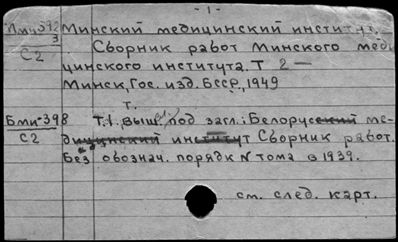 - 1 -
Лми-592 Минский медицинский институт.
3
С2 Сборник работ Минского меди
цинского института. Т 2 —
Минск, Гос. изд. БССР, 1949
т.
Бми-398 Т.1. выш. под загл.: Белорусский ме-
С2 дицинский институт Сборник работ.
Без обознач. порядк № тома в 1939.
см. след. карт.